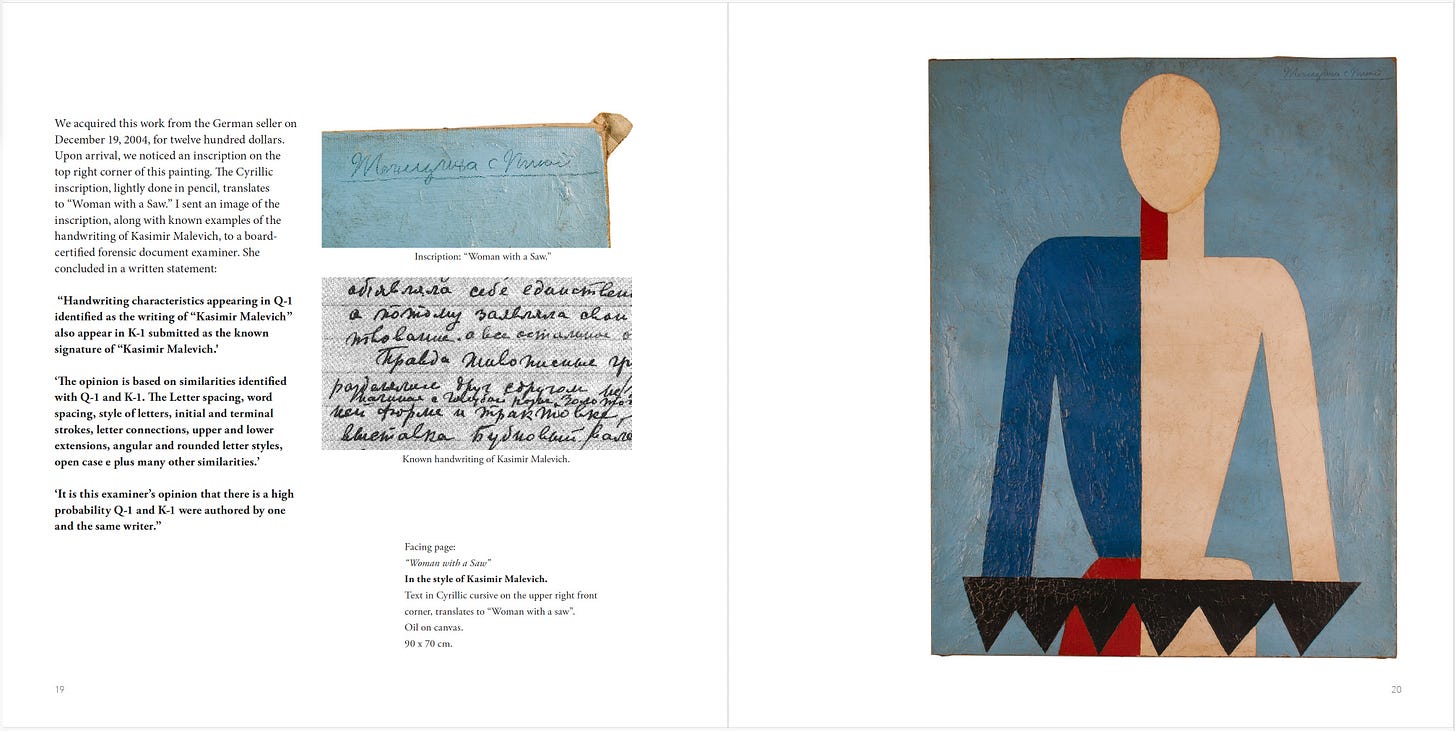 We acquired this work from the German seller on
December 19, 2004, for twelve hundred dollars.
Upon arrival, we noticed an inscription on the
top right corner of this painting. The Cyrillic
inscription, lightly done in pencil, translates
to “Woman with a Saw.” I sent an image of the
inscription, along with known examples of the
handwriting of Kasimir Malevich, to a board-
certified forensic document examiner. She
concluded in a written statement:
“Handwriting characteristics appearing in Q-1
identified as the writing of “Kasimir Malevich”
also appear in K-1 submitted as the known
signature of “Kasimir Malevich.'
‘The opinion is based on similarities identified
with Q-1 and K-1. The Letter spacing, word
spacing, style of letters, initial and terminal
strokes, letter connections, upper and lower
extensions, angular and rounded letter styles,
open case e plus many other similarities.’
‘It is this examiner’s opinion that there is a high
probability Q-1 and K-1 were authored by one
and the same writer.”
19
Inscription: “Woman with a Saw.”
себе единствен
а потому заявляла свои
а все остальное
Правда живописные
друг
форме и трактовке
выставка Бубновый вале
Known handwriting of Kasimir Malevich.
Facing page:
“Woman with a Saw”
In the style of Kasimir Malevich.
Text in Cyrillic cursive on the upper right front
corner, translates to “Woman with a saw”.
Oil on canvas.
90 x 70 cm.
20